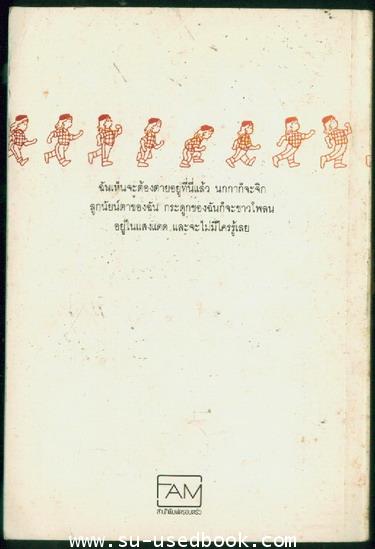 ฉันเห็นจะต้องตายอยู่ที่นี่แล้ว นกกาก็จะจิก
ลูกนัยน์ตาของฉัน กระดูกของฉันก็จะขาวโพลน
อยู่ในแสงแดด และจะไม่มีใครรู้เลย
FAM
สำนักพิมพ์ครอบครัว
www.su-usedbook.com